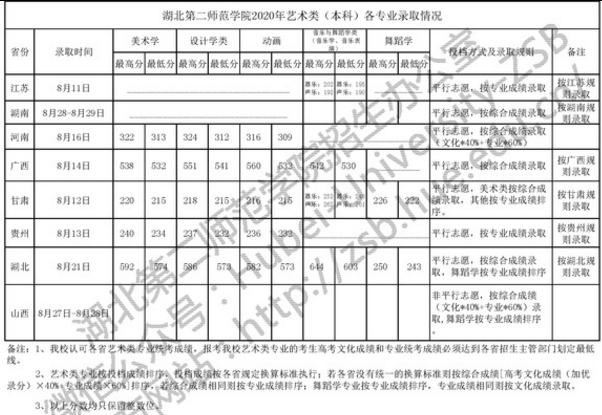 湖北第二师范学院2020年艺术类（本科）各专业录取情况
省份 录取时间 美术学 设计学类 动画 音乐与舞蹈学类（音乐学、音乐表演） 舞蹈学 投档方式及录取规则 备注
最高分 最低分 最高分 最低分 最高分 最低分 最高分 最低分 最高分 最低分
江苏 8月11日 器乐：202 声乐：192 器乐：195 声乐：190 平行志愿，按专业成绩录取 按江苏规则录取
湖南 8月28-8月29日 平行志愿，按综合成绩录取 按湖南规则录取
河南 8月16日 322 313 324 312 316 309 平行志愿，按综合成绩录取（文化*40%+专业*60%）
广西 8月14日 538 532 551 541 560 532 542 530 平行志愿，按综合成绩录取 按广西规则录取
甘肃 8月12日 220 215 218 215 216 215 226 222 平行志愿，美术类按综合成绩录取，其他按专业成绩排序。 按甘肃规则录取
贵州 8月13日 240 234 237 232 236 232 平行志愿，按专业成绩录取 按贵州规则录取
湖北 8月21日 592 574 586 573 582 573 644 603 250 243 平行志愿，按综合成绩录取，舞蹈学按专业成绩排序 按湖北规则录取
山西 8月27日-8月28日 非平行志愿，按综合成绩（文化*40%+专业*60%）录取，舞蹈学按专业成绩排序。
备注：1、我校认可各省艺术类专业统考成绩。报考我校艺术类专业的考生高考文化成绩和专业统考成绩必须达到各省招生主管部门划定最低线。
2、艺术类专业按投档成绩排序。投档成绩按各省规定换算标准执行；若各省没有统一的换算标准则按综合成绩[高考文化成绩（加优录分）×40%+专业成绩×60%]排序，若综合成绩相同则按专业成绩排序；舞蹈学专业按专业成绩排序，专业成绩相同则按文化成绩录取。
3、以上分数均只保留整数位。
湖北第二师范学院招生办公室
Hubei University-ZSB
http://zsb.hue.edu.cn/